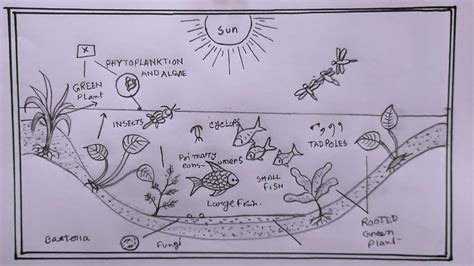 Sun
x
PHYTOPLANKTION
AND ALGAE
GREEN
Plant
INSECTS
CYCLOPS
TADPOLES
Primarry
cons-
umers
SMALL
FISH
Large Fish.
ROOTED
Green
Plant
Bacteria
Fungi